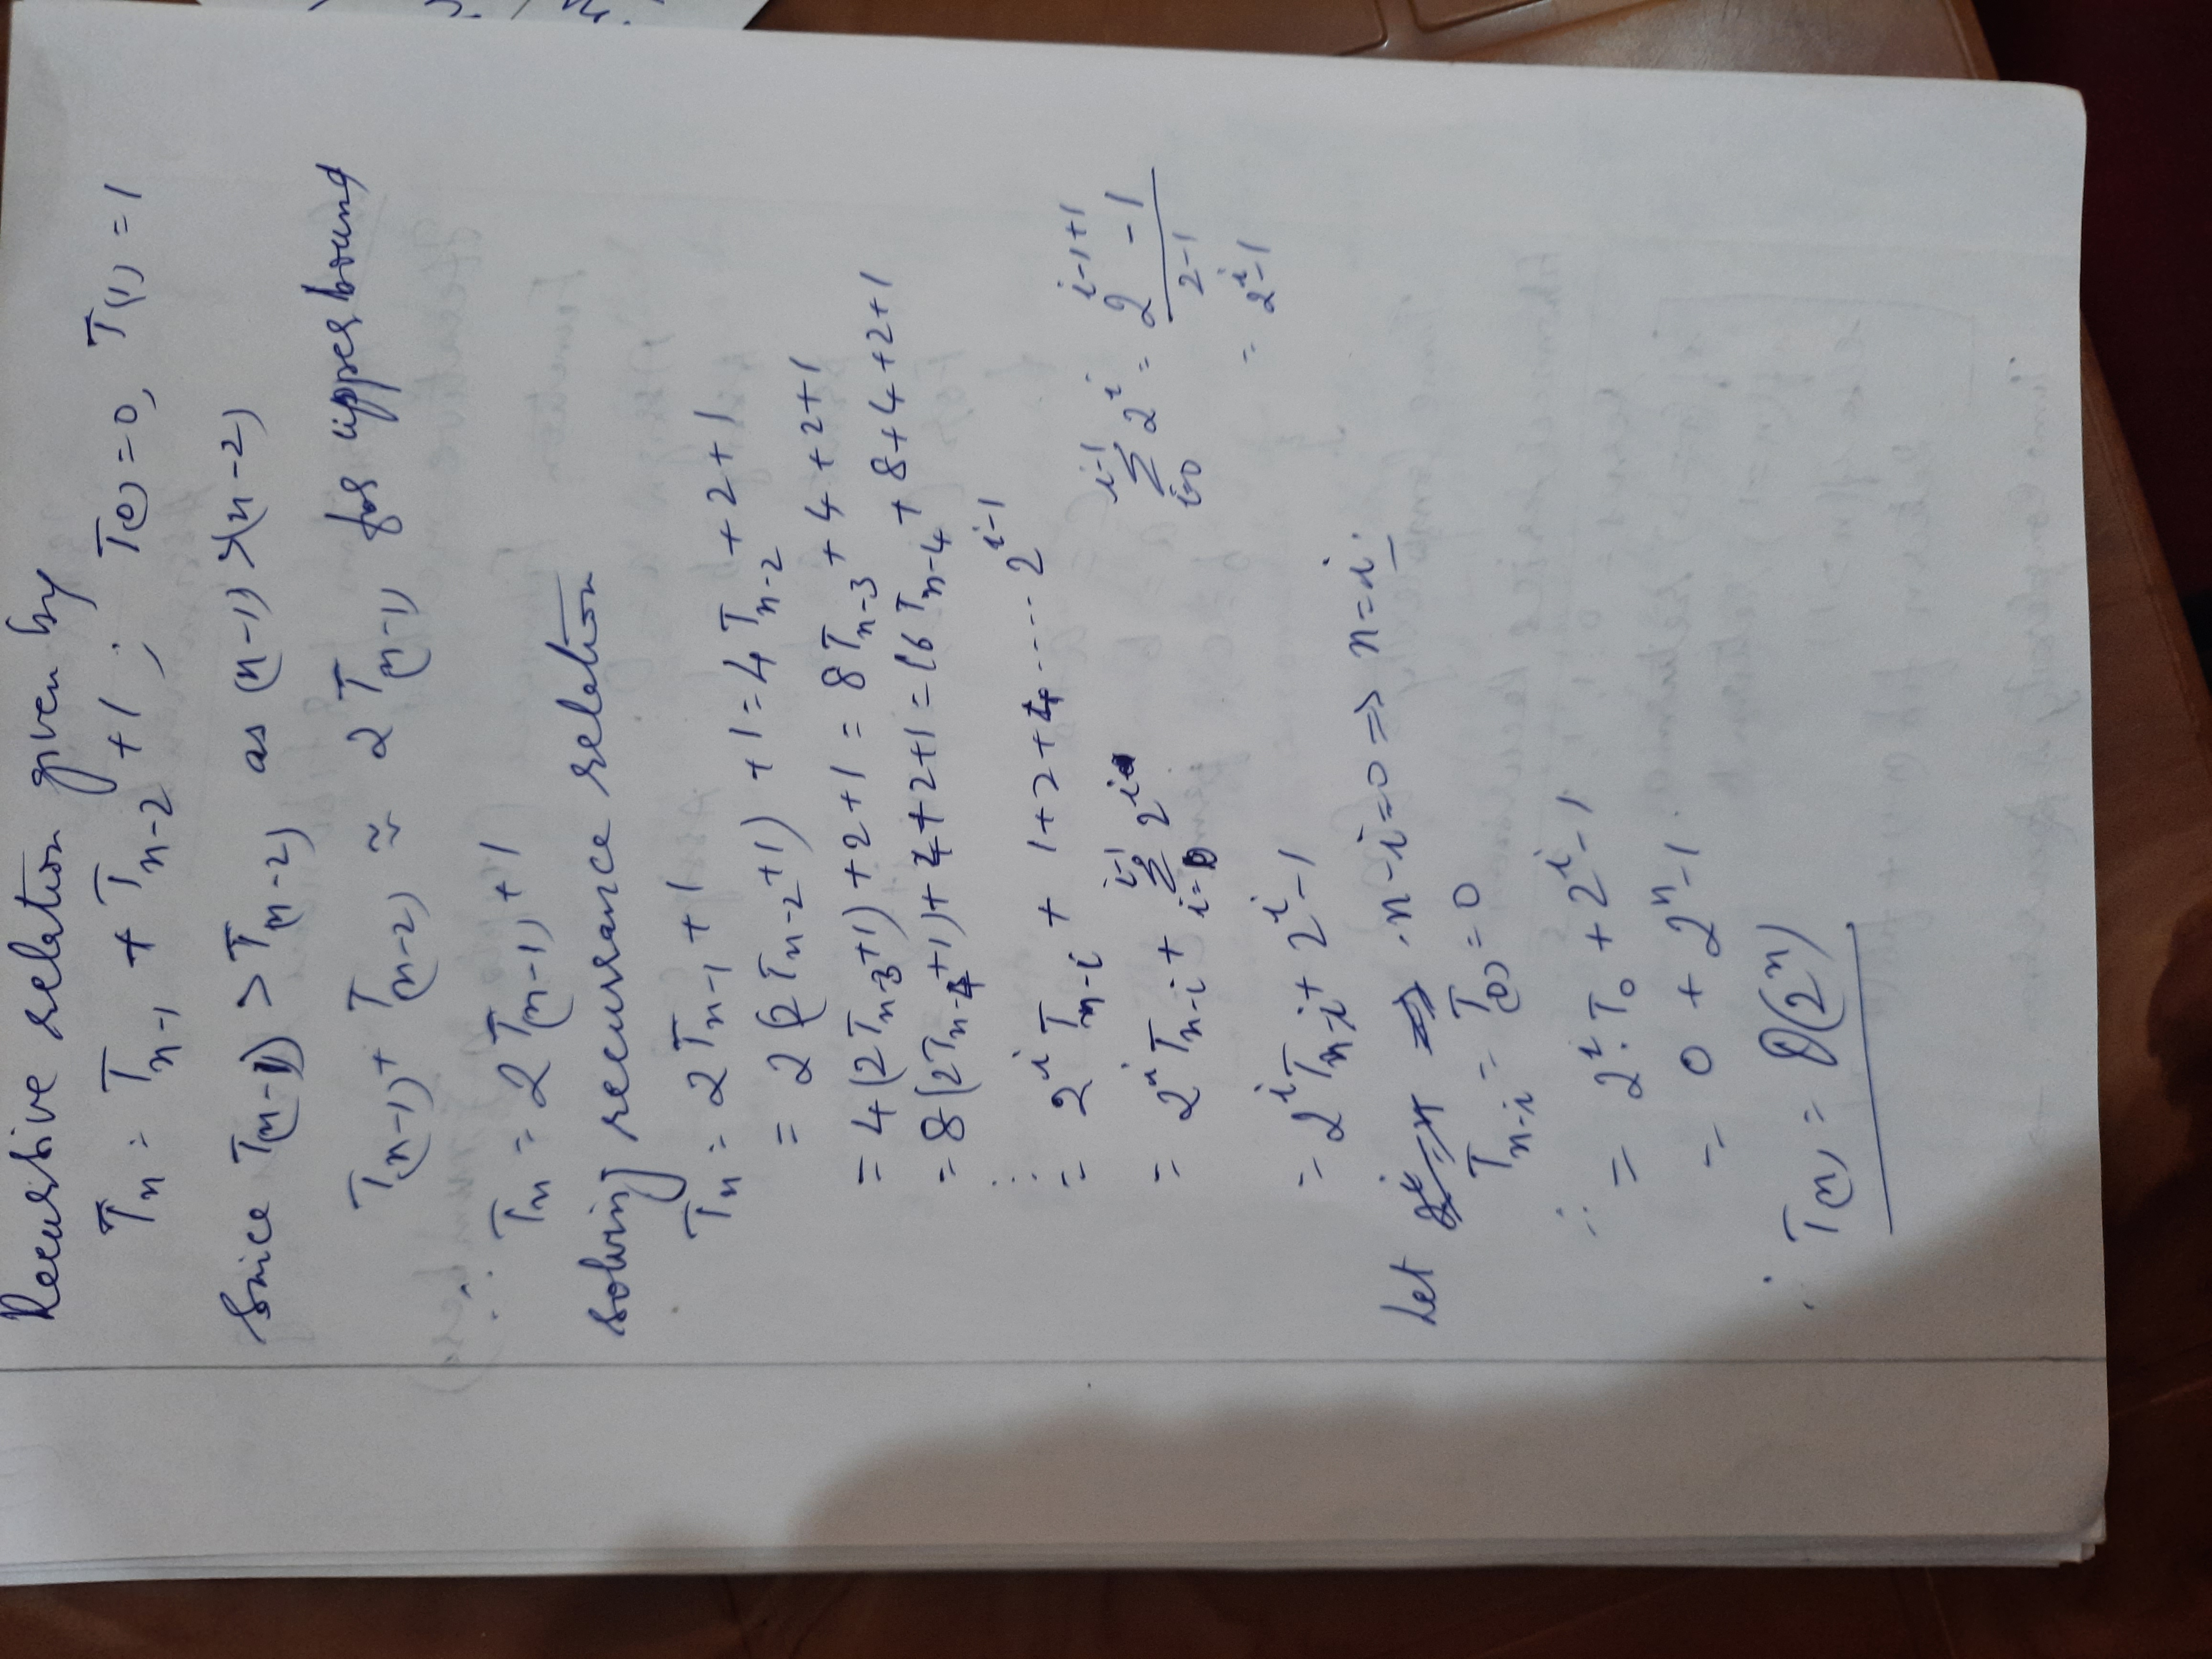 Recursive relation given by
Tn = Tn-1 + Tn-2 +1 ; T(0) = 0, T(1) = 1
Since T(n-1) > T(n-2) as (n-1) > (n-2)
T(n-1) + T(n-2) ≈ 2 T(n-1) for upper bound
∴ Tn = 2 T(n-1) + 1
solving recurrance relation
Tn = 2 Tn-1 + 1
= 2 (2 Tn-2 +1) + 1 = 4 Tn-2 + 2 + 1
= 4 (2 Tn-3 +1) + 2 + 1 = 8 Tn-3 + 4 + 2 + 1
= 8 (2 Tn-4 +1) + 4 + 2 + 1 = 16 Tn-4 + 8 + 4 + 2 + 1
⋮
= 2^i Tn-i + 1 + 2 + 4 ---- 2^(i-1)
= 2^i Tn-i + Σ_(i=0)^(i-1) 2^i
Σ_(i=0)^(i-1) 2^i = (2^(i-1+1) - 1)/(2-1)
= 2^i - 1
= 2^i Tn-i + 2^i - 1
Let n-i = 0 => n = i.
Tn-i = T(0) = 0
∴ = 2^i . T0 + 2^i - 1
= 0 + 2^n - 1.
∴ T(n) = O(2^n)